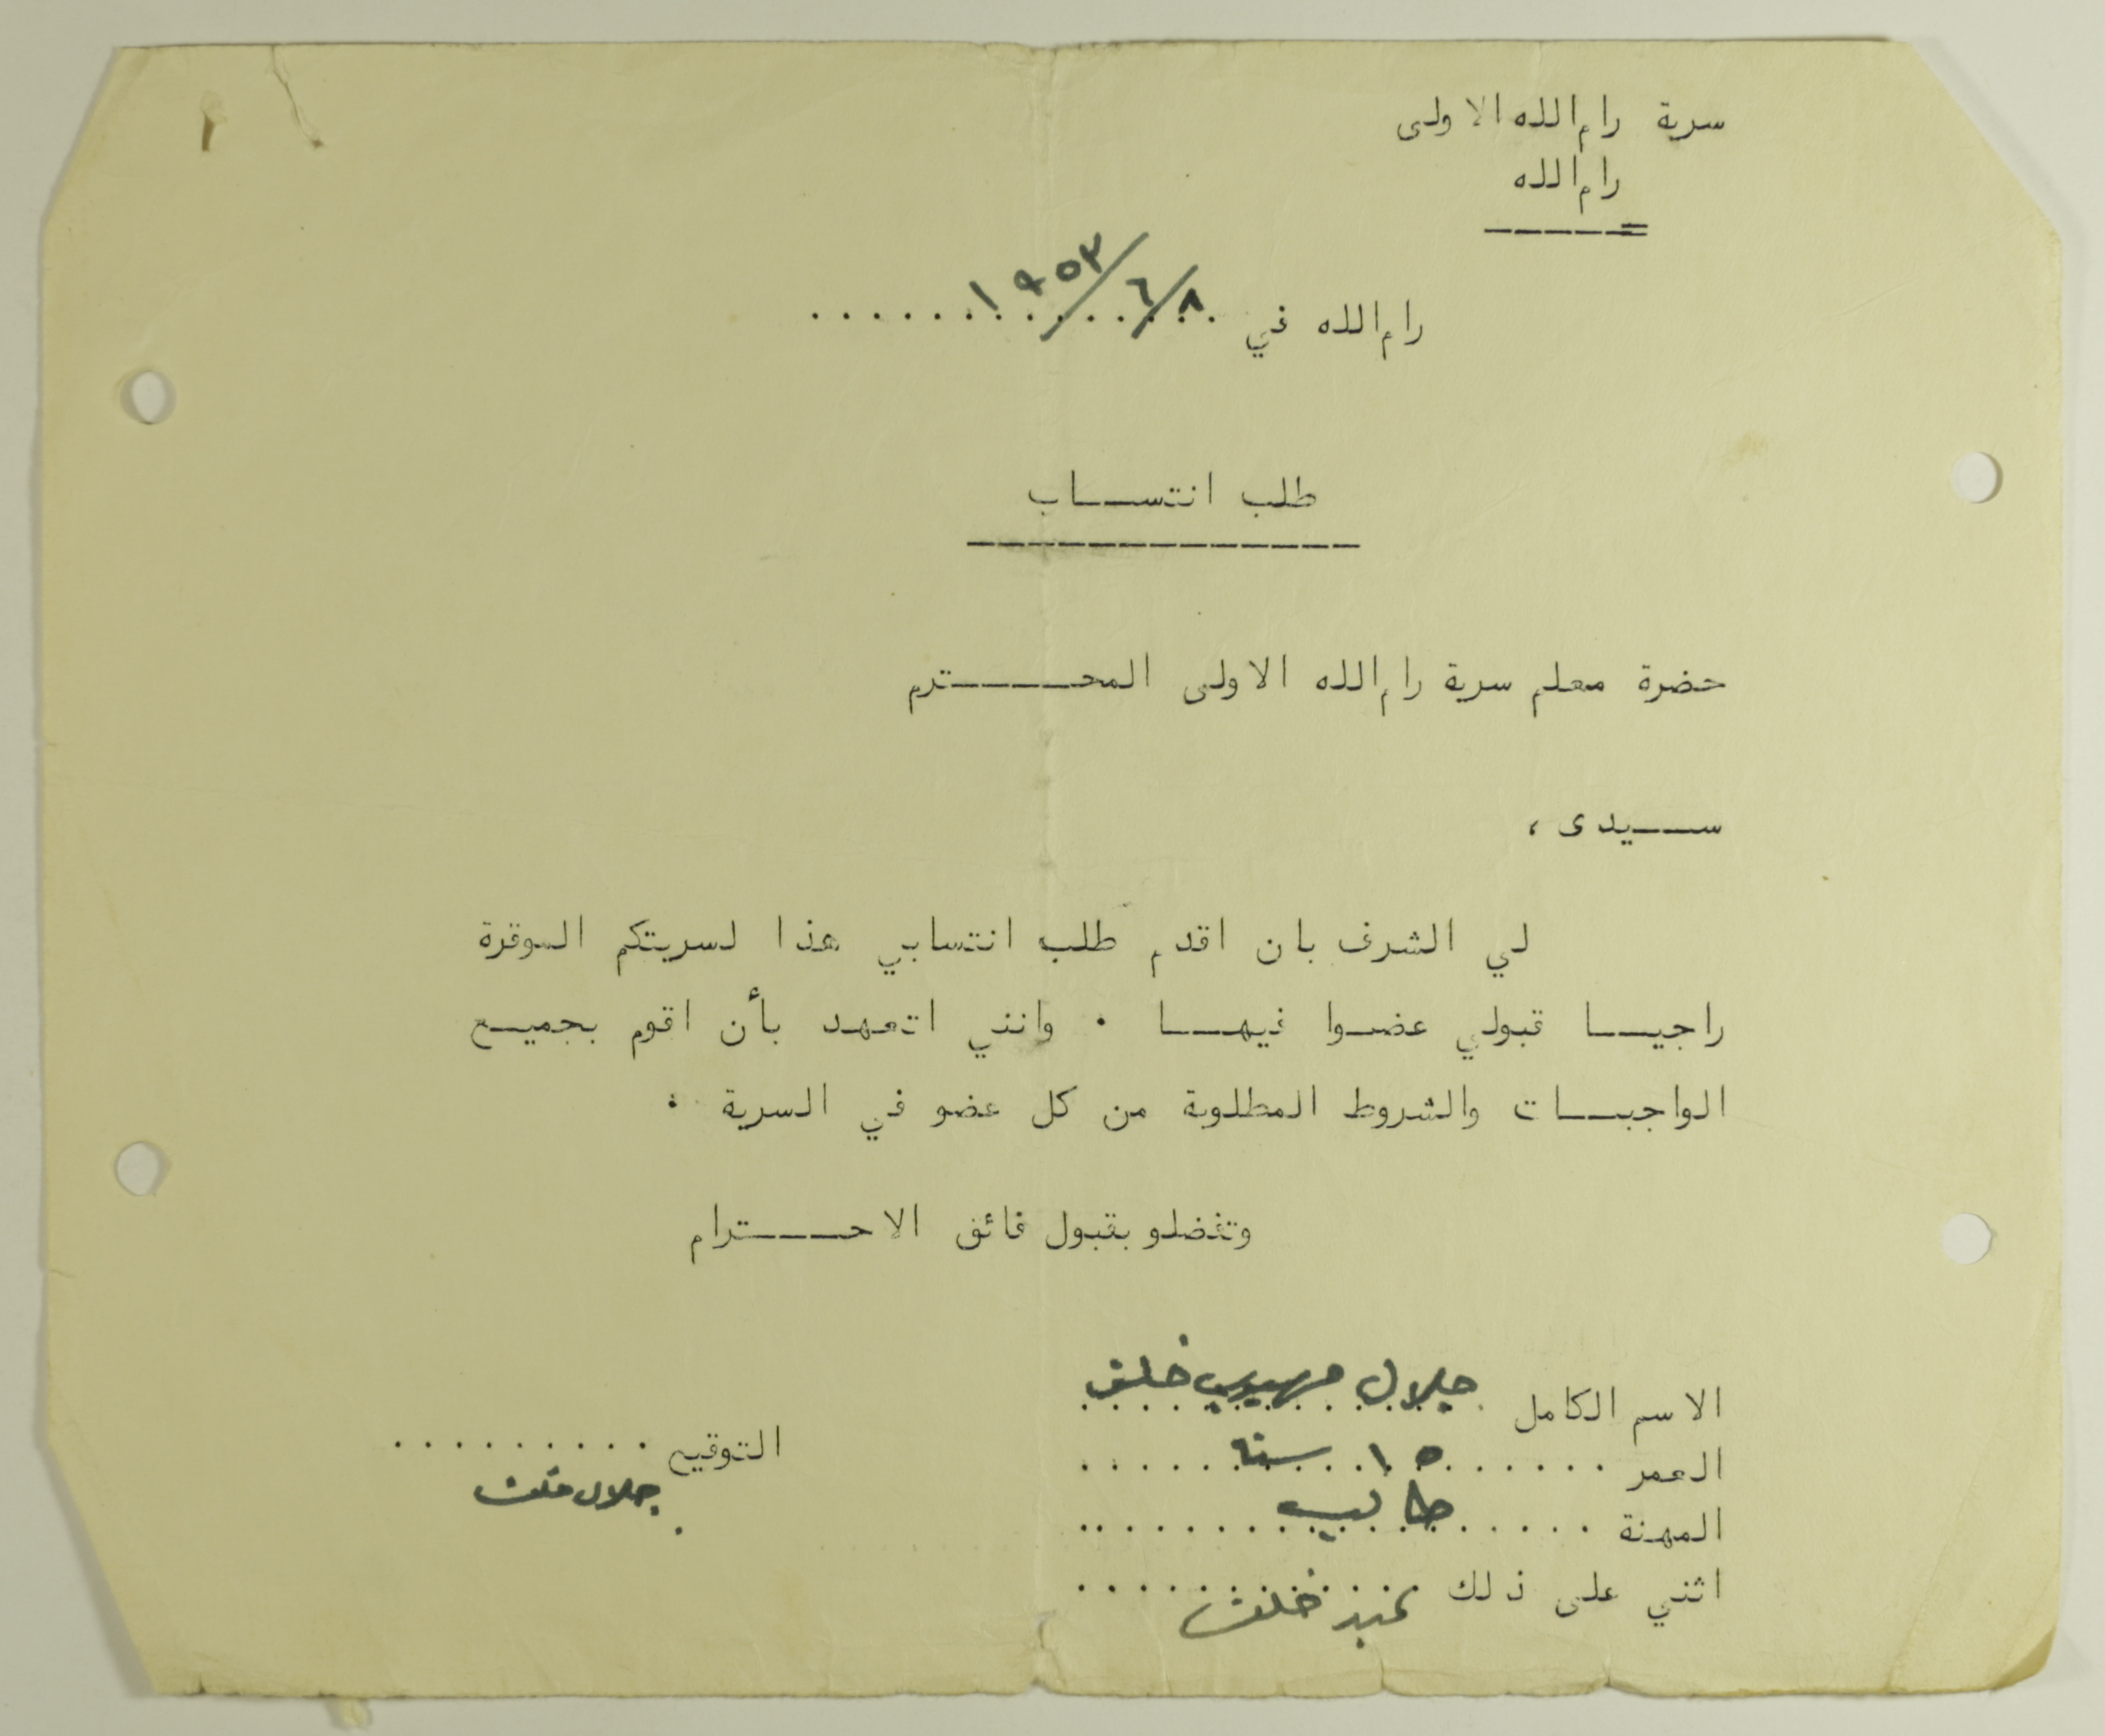 سرية رام الله الاولى
رام الله
رام الله في ٨/٦/١٩٥٣
طلب انتساب
حضرة معلم سرية رام الله الاولى المحترم
سيدى ،
لي الشرف بان اقدم طلب انتسابي هذا لسريتكم الموقرة
راجيا قبولي عضوا فيها . وانني اتعهد بأن اقوم بجميع
الواجبات والشروط المطلوبة من كل عضو في السرية :
وتفضلو بقبول فائق الاحترام
الاسم الكامل جلال خلف
العمر ١٥ سنة
المهنة طالب
اثني على ذلك خلف
التوقيع
جلال خلف